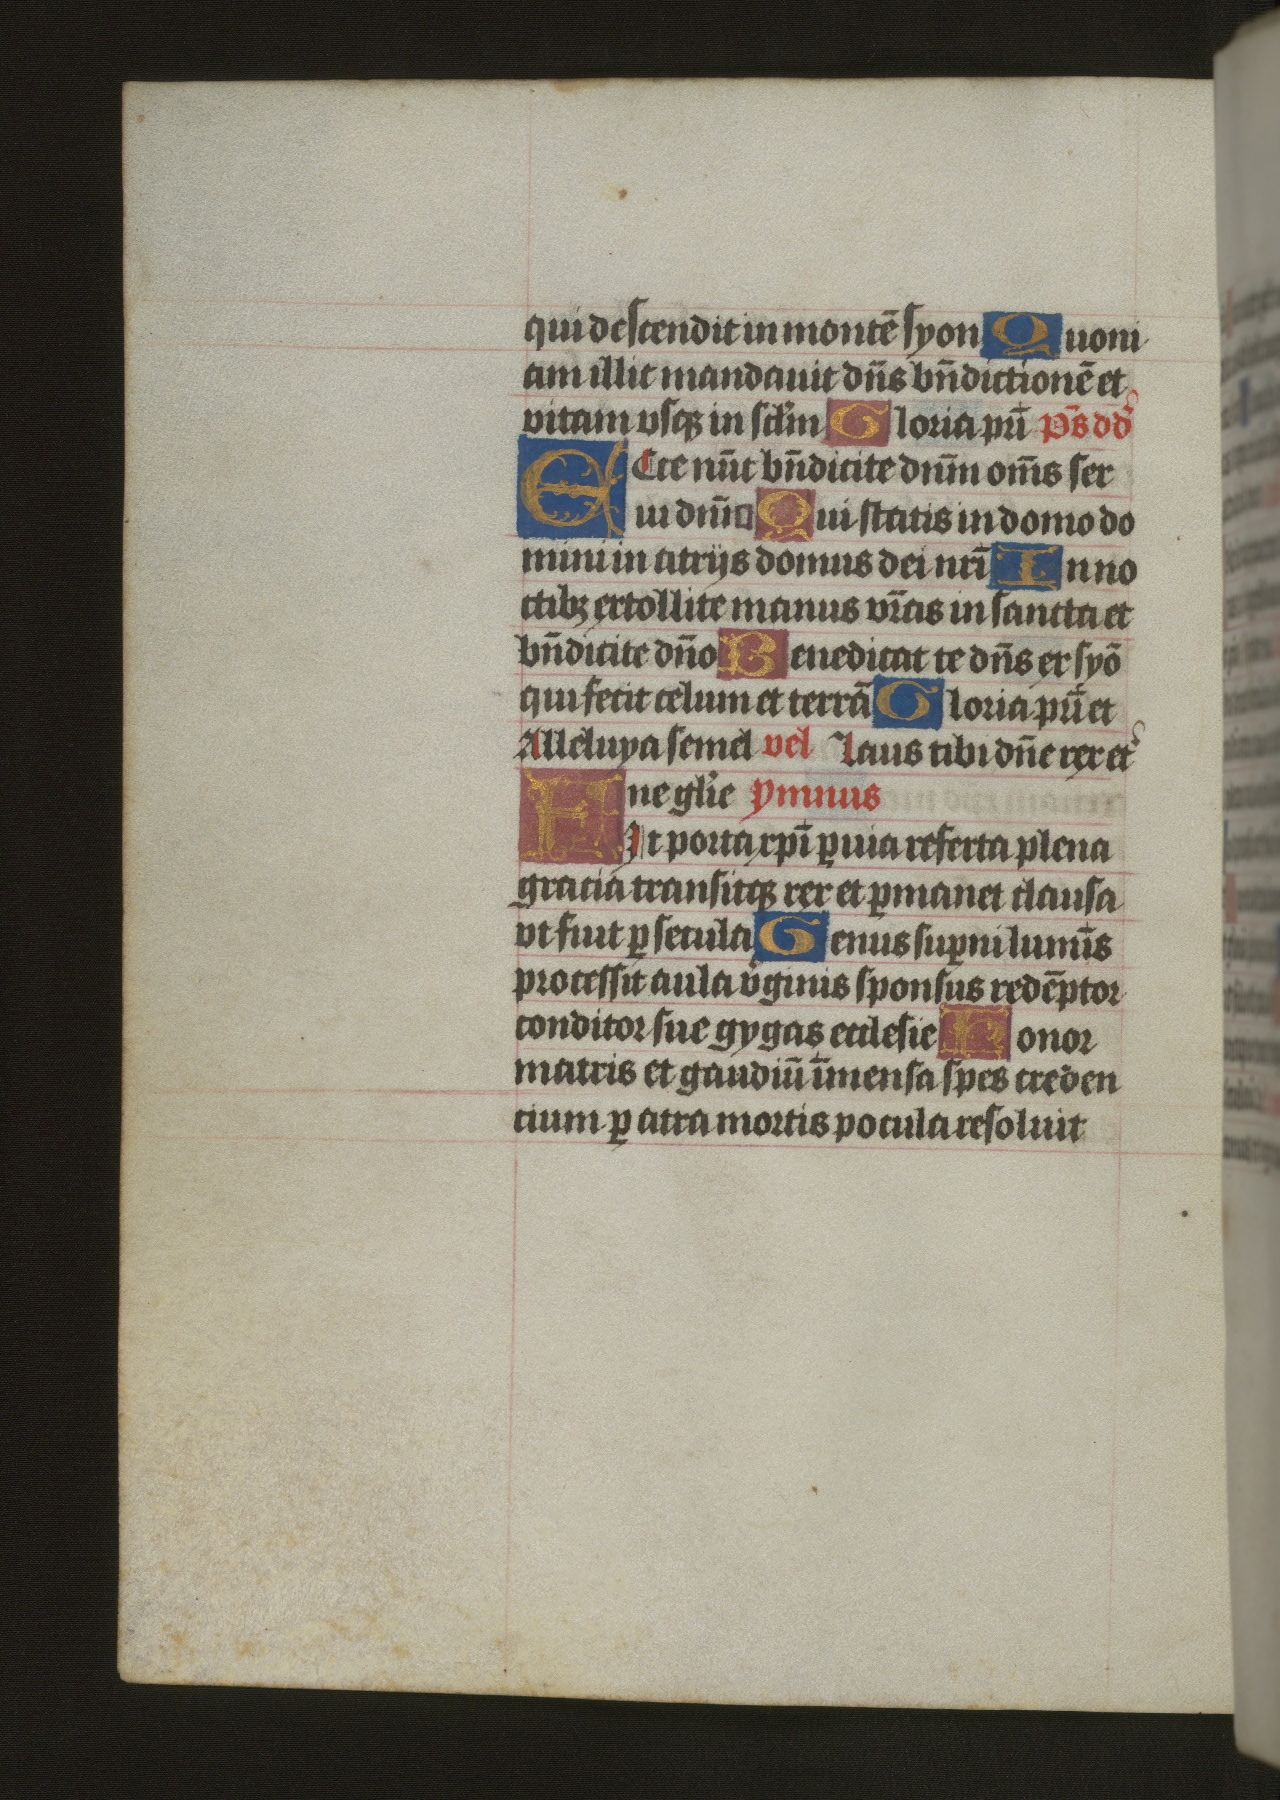 qui descendit in montē syon Quoni
am illic mandauit dn̄s bn̄dictionē et
vitam vsqꝫ in scl̄m Gloria pr̄i Ps̄ dd̄
Ecce nūc bn̄dicite dnm̄ om̄s ser
ui dnī Qui statis in domo do
mini in atrijs domus dei nrī In no
ctibꝫ extollite manus vr̄as in sancta et
bn̄dicite dn̄o Benedicat te dn̄s ex syō
qui fecit celum et terrā Gloria pr̄i et
Alleluya semel vel Laus tibi dn̄e rex et
ne gl̄ie ymnus
Fit porta xpī ꝑuia referta plena
gracia transitqꝫ rex et ꝑmanet clausa
vt fuit ꝑ secula Genus suꝑni lumīs
processit aula v̄ginis sponsus redēptor
conditor sue gygas ecclesie Honor
matris et gaudiū īmensa spes creden
cium ꝑ atra mortis pocula resoluit